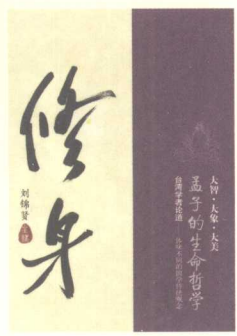 修身
刘锦贤
大智·大象·大美
孟子的生命哲学
台湾学者论道